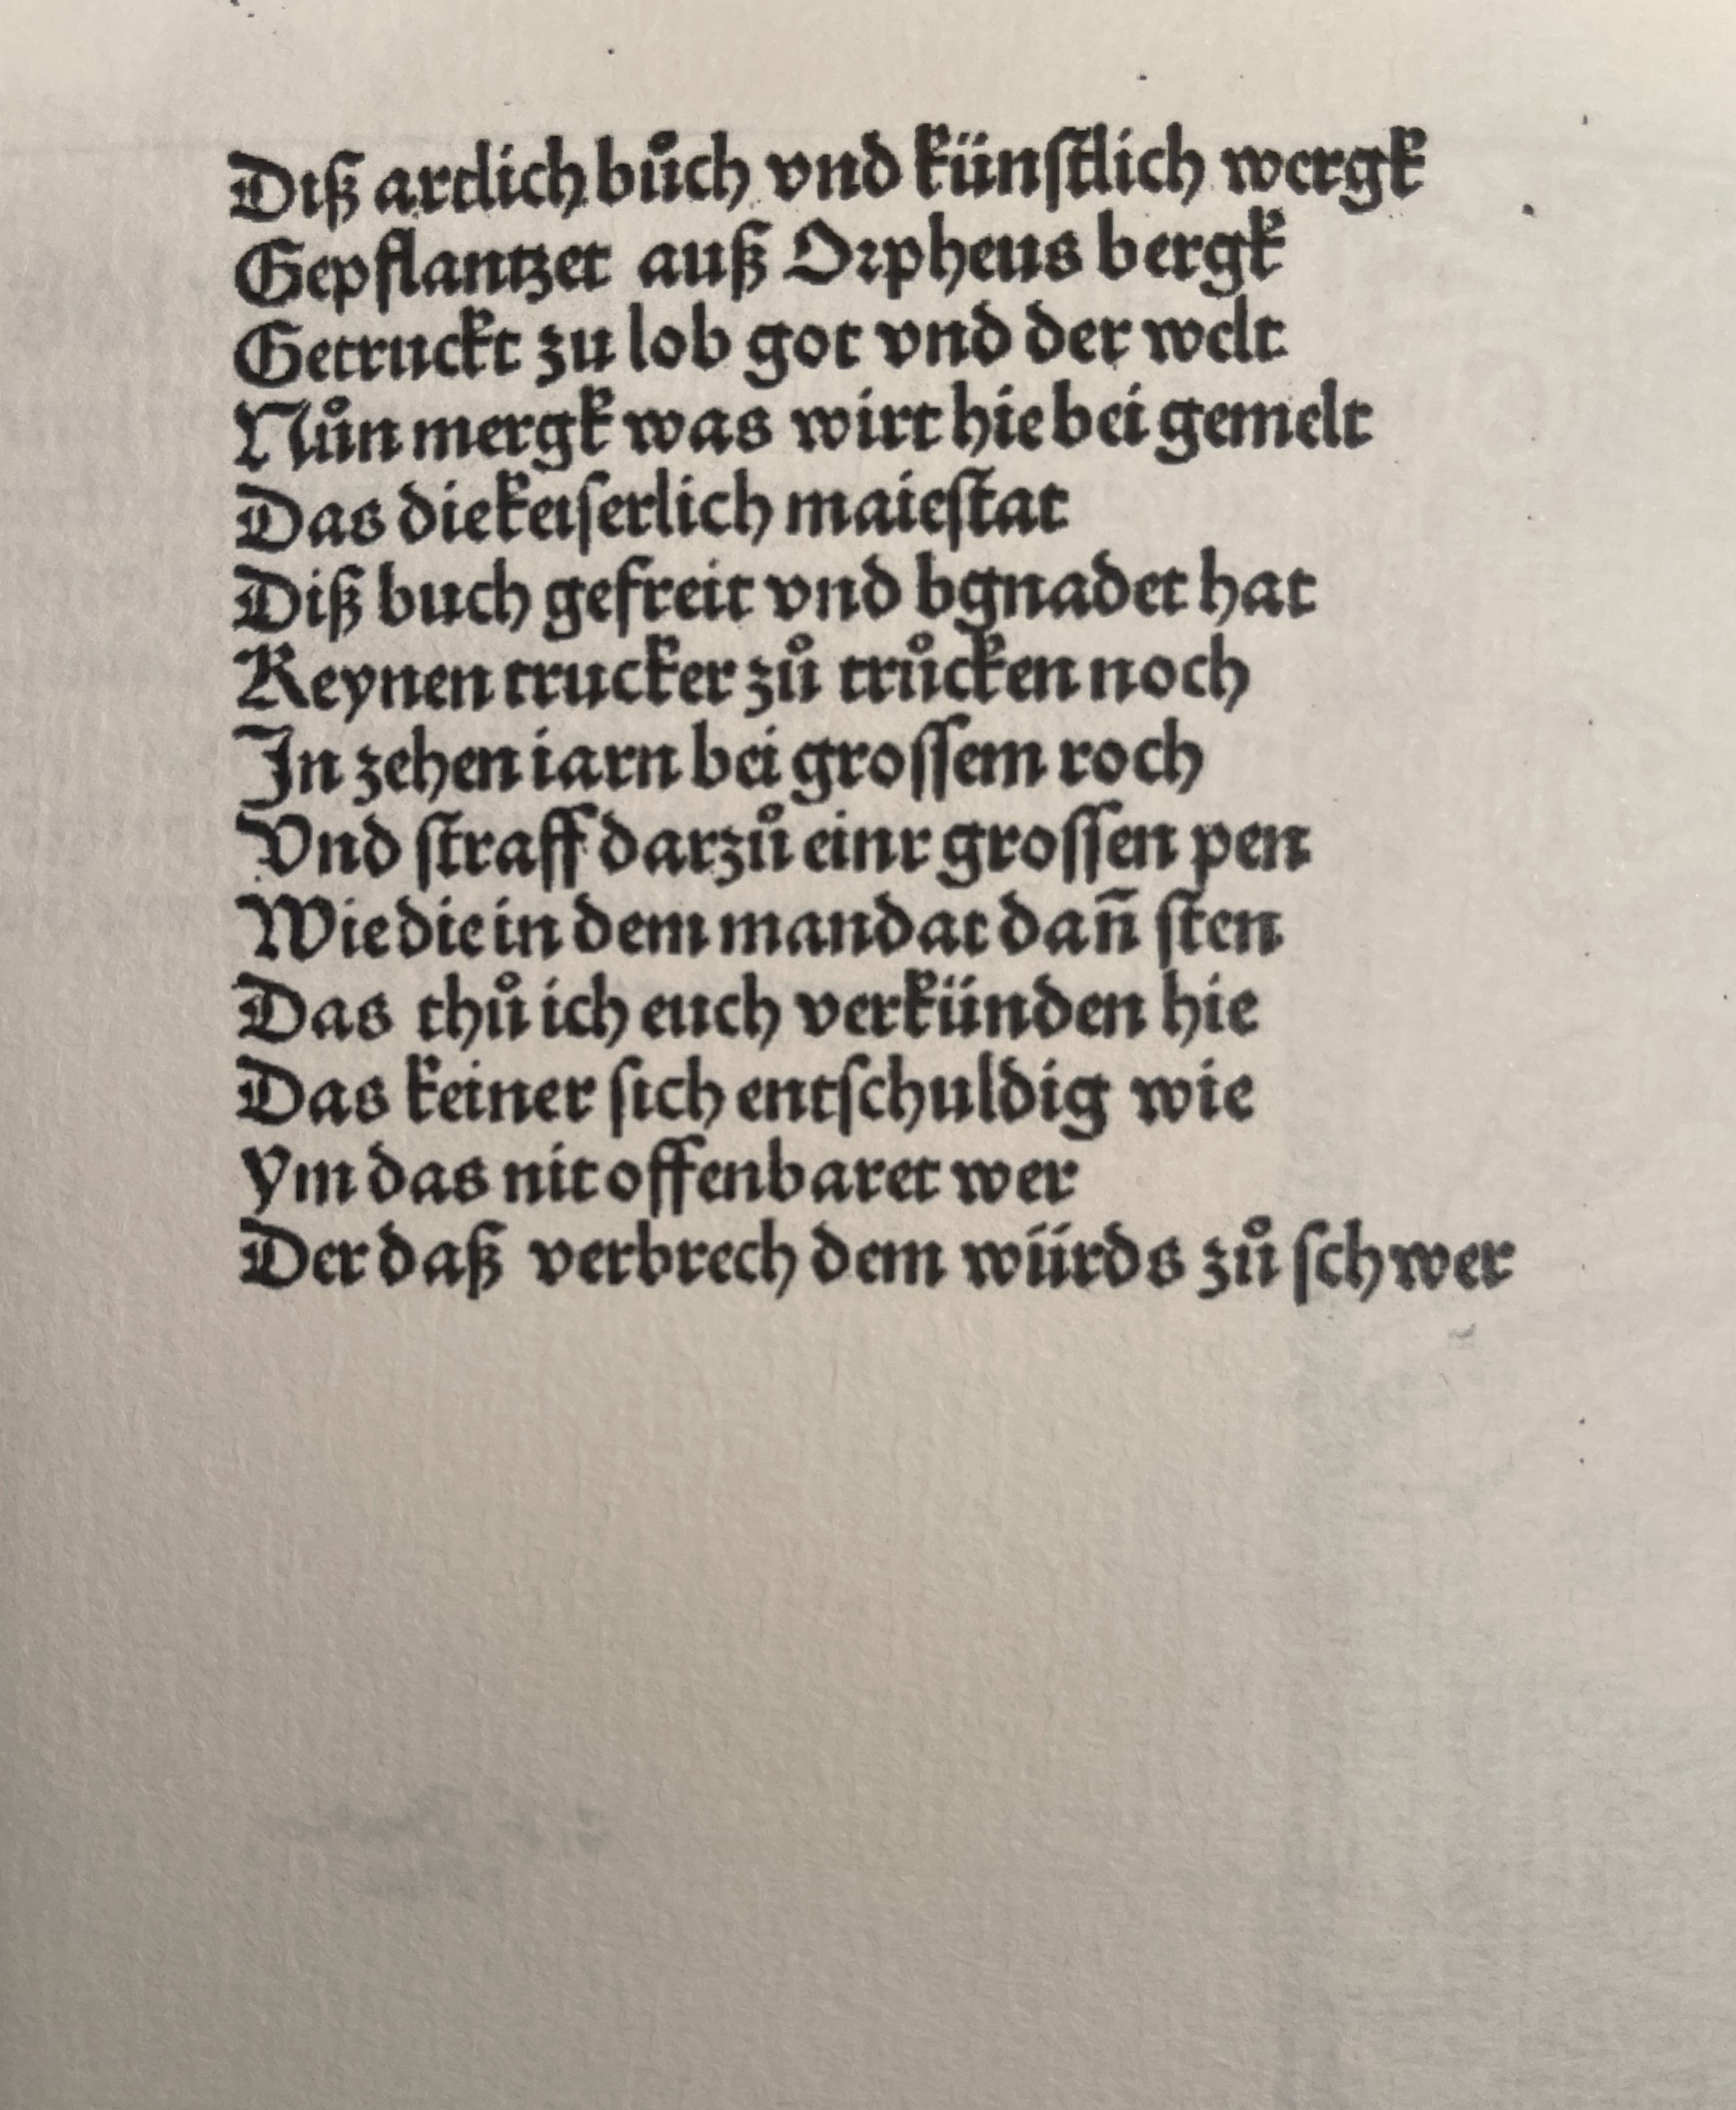 Diß artlich bůch vnd künſtlich wergk
Gepflantzet auß Orpheus bergk
Getruckt zu lob got vnd der welt
Nůn mergk was wirt hie bei gemelt
Das die keiſerlich maieſtat
Diß buch gefreit vnd bgnadet hat
Keynen trucker zů trůcken noch
In zehen iarn bei groſſem roch
Vnd ſtraff darzů einr groſſen pen
Wie die in dem mandat dañ ſten
Das thů ich euch verkünden hie
Das keiner ſich entſchuldig wie
Ym das nit offenbaret wer
Der daß verbrech dem würds zů ſchwer